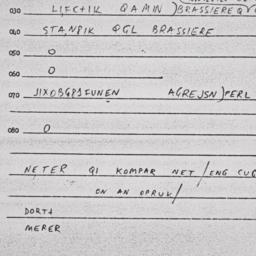 030 LIFCTIK QAMIN ) BRASSIERE QV
040 STANPIK QGL BRASSIERE
050 0
060 0
070 JIXOBGPSFUNEN AGREJSN ) PERL
080 0
NETER QI KOMPAR NET / ENG CUG
ON AN OPRUK /
DORT+
MERER